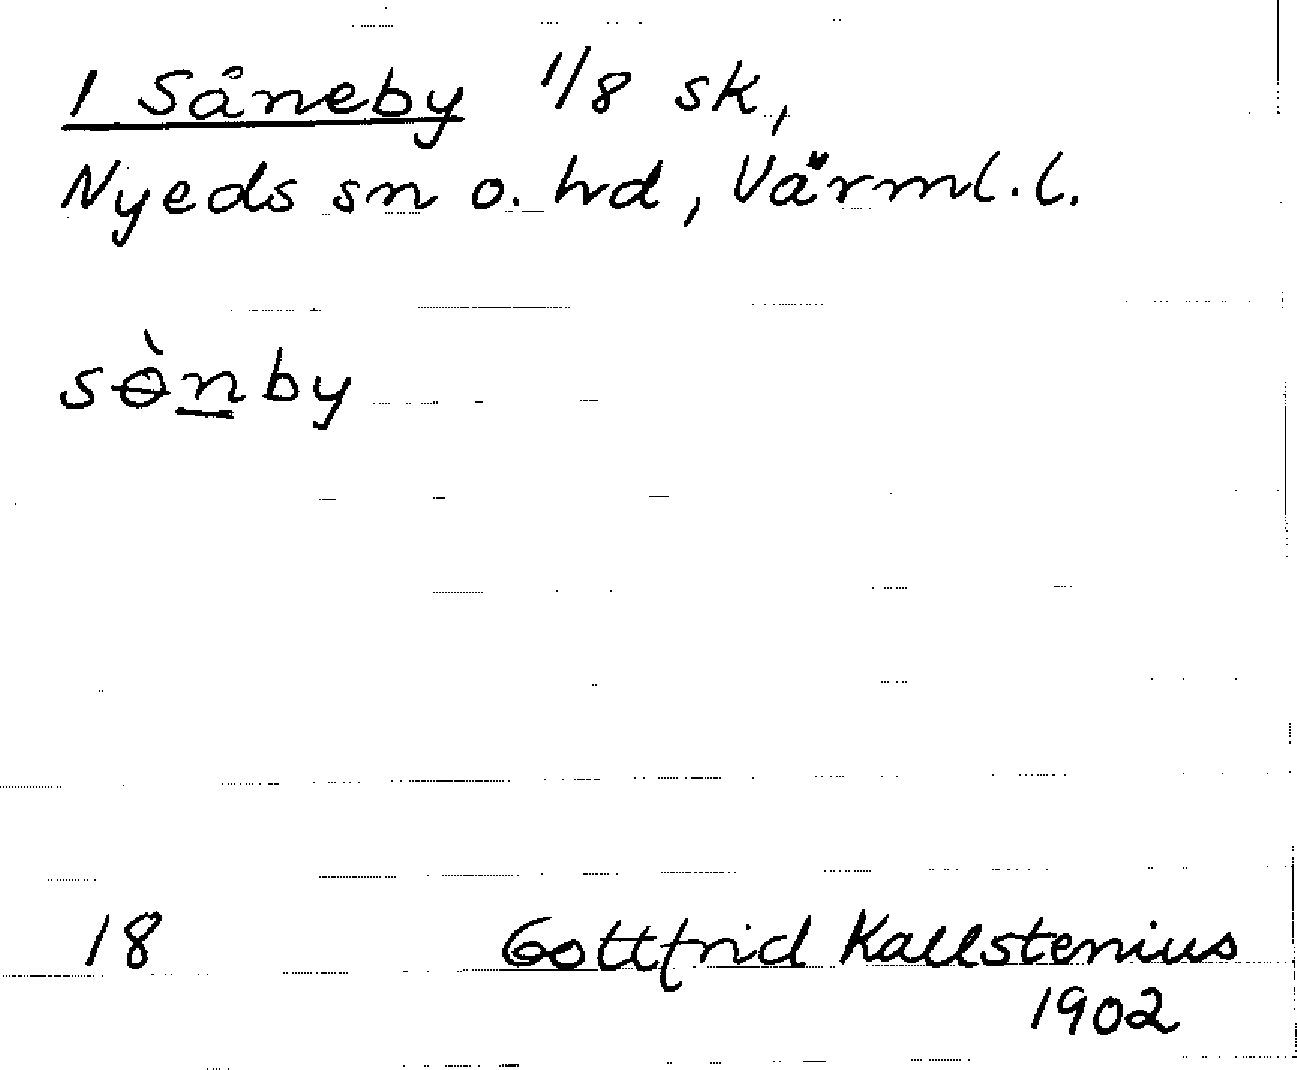 1 Såneby 1/8 sk,
Nyeds sn o. hd, Värml. l.
sɵ̀n̲by
18 Gottfrid Kallstenius
1902